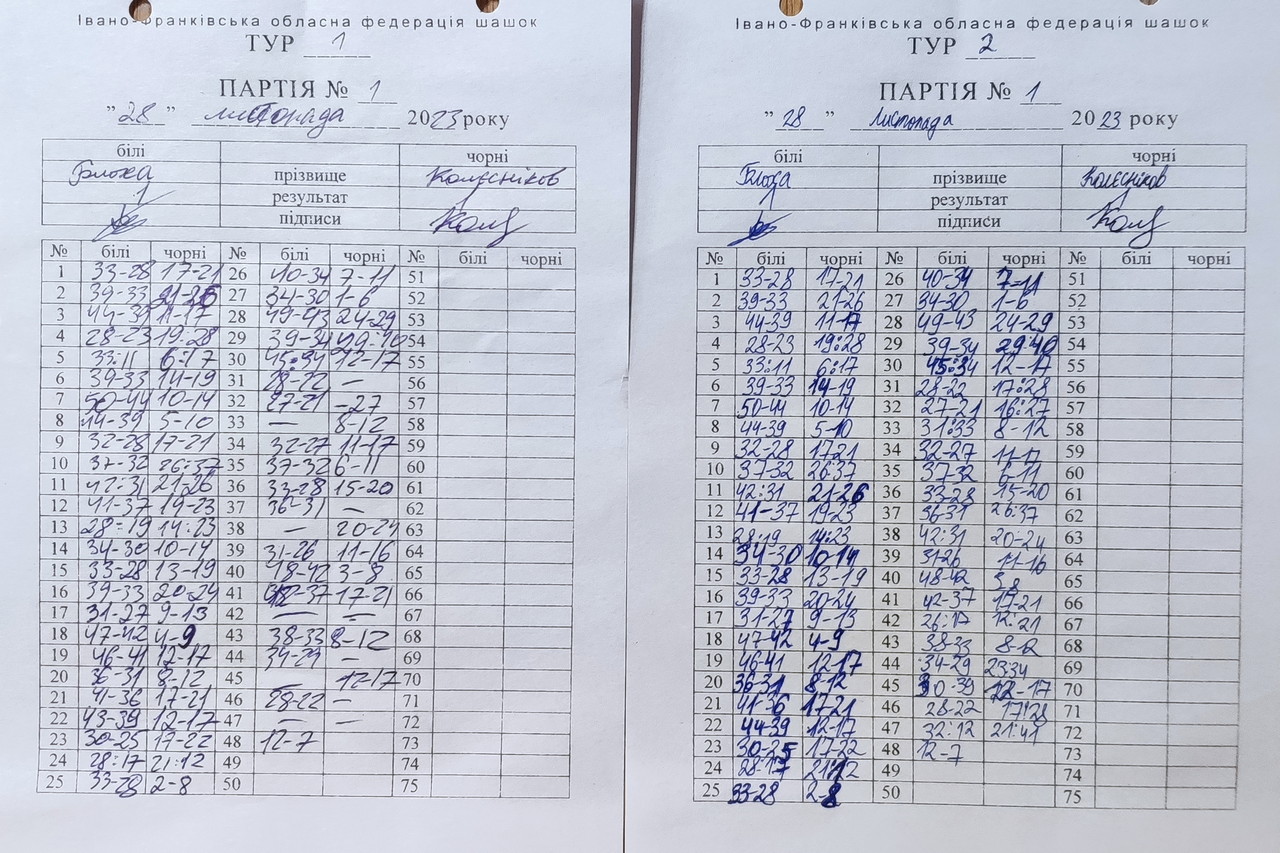 Івано-Франківська обласна федерація шашок
ТУР 1
ПАРТІЯ № 1
"28" листопада 2023 року
білі чорні
Блоха прізвище Колєсніков
1 результат
підписи
№ білі чорні № білі чорні № білі чорні
1 33-28 17-21 26 40-34 7-11 51
2 39-33 21-26 27 34-30 1-6 52
3 44-39 11-17 28 49-43 24-29 53
4 28-23 19:28 29 39-34 29:40 54
5 33:11 6:17 30 45:34 12-17 55
6 39-33 14-19 31 28-22 — 56
7 50-44 10-14 32 27-21 -27 57
8 44-39 5-10 33 — 8-12 58
9 32-28 17-21 34 32-27 11-17 59
10 37-32 26:37 35 37-32 6-11 60
11 42:31 21-26 36 33-28 15-20 61
12 41-37 19-23 37 36-31 — 62
13 28:19 14:23 38 — 20-24 63
14 34-30 10-14 39 31-26 11-16 64
15 33-28 13-19 40 48-42 3-8 65
16 39-33 20-24 41 42-37 17-21 66
17 31-27 9-13 42 — — 67
18 47-42 4-9 43 38-33 8-12 68
19 46-41 12-17 44 34-29 — 69
20 36-31 8-12 45 — 12-17 70
21 41-36 17-21 46 28-22 — 71
22 43-39 12-17 47 — — 72
23 30-25 17-22 48 12-7 73
24 28:17 21:12 49 74
25 33-28 2-8 50 75
Івано-Франківська обласна федерація шашок
ТУР 2
ПАРТІЯ № 1
"28" Листопада 2023 року
білі чорні
Блоха прізвище Колєсніков
1 результат
підписи
№ білі чорні № білі чорні № білі чорні
1 33-28 17-21 26 40-34 7-11 51
2 39-33 21-26 27 34-30 1-6 52
3 44-39 11-17 28 49-43 24-29 53
4 28-23 19:28 29 39-34 29:40 54
5 33:11 6:17 30 45:34 12-17 55
6 39-33 14-19 31 28-22 17:28 56
7 50-44 10-14 32 27-21 16:27 57
8 44-39 5-10 33 31:33 8-12 58
9 32-28 17-21 34 32-27 11-17 59
10 37-32 26:37 35 37-32 6-11 60
11 42:31 21-26 36 33-28 15-20 61
12 41-37 19-23 37 36-31 26:37 62
13 28:19 14:23 38 42:31 20-24 63
14 34-30 10-14 39 31-26 11-16 64
15 33-28 13-19 40 48-42 3-8 65
16 39-33 20-24 41 42-37 17-21 66
17 31-27 9-13 42 26:17 12:21 67
18 47-42 4-9 43 38-33 8-12 68
19 46-41 12-17 44 34-29 23:34 69
20 36-31 8-12 45 30:39 12-17 70
21 41-36 17-21 46 28-22 17:28 71
22 44-39 12-17 47 32:12 21:41 72
23 30-25 17-22 48 12-7 73
24 28:17 21:12 49 74
25 33-28 2-8 50 75